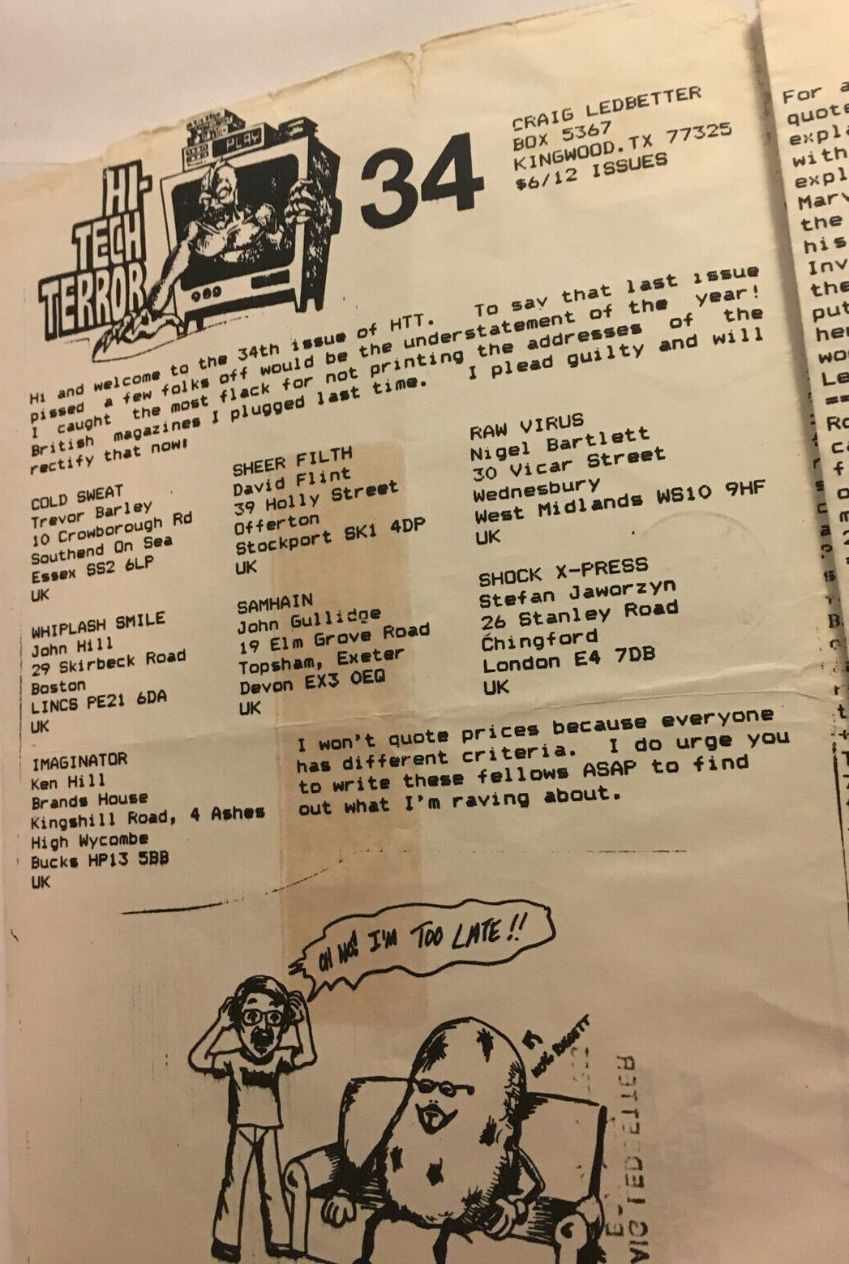 HI-
TECH
TERROR
PLAY
34
CRAIG LEDBETTER
BOX 5367
KINGWOOD.TX 77325
$6/12 ISSUES
Hi and welcome to the 34th issue of HTT. To say that last issue
pissed a few folks off would be the understatement of the year!
I caught the most flack for not printing the addresses of the
British magazines I plugged last time. I plead guilty and will
rectify that now:
COLD SWEAT
Trevor Barley
10 Crowborough Rd
Southend On Sea
Essex SS2 6LP
UK
SHEER FILTH
David Flint
39 Holly Street
Offerton
Stockport SK1 4DP
UK
RAW VIRUS
Nigel Bartlett
30 Vicar Street
Wednesbury
West Midlands WS10 9HF
UK
WHIPLASH SMILE
John Hill
29 Skirbeck Road
Boston
LINCS PE21 6DA
UK
SAMHAIN
John Gullidge
19 Elm Grove Road
Topsham, Exeter
Devon EX3 0EQ
UK
SHOCK X-PRESS
Stefan Jaworzyn
26 Stanley Road
Chingford
London E4 7DB
UK
IMAGINATOR
Ken Hill
Brands House
Kingshill Road, 4 Ashes
High Wycombe
Bucks HP13 5BB
UK
I won't quote prices because everyone
has different criteria. I do urge you
to write these fellows ASAP to find
out what I'm raving about.
OH NO! I'M TOO LATE!!
BY
For a
quote
expla
with
expl
Marv
the
his
Inv
the
put
her
wo
Le
==
Ro
ca
f